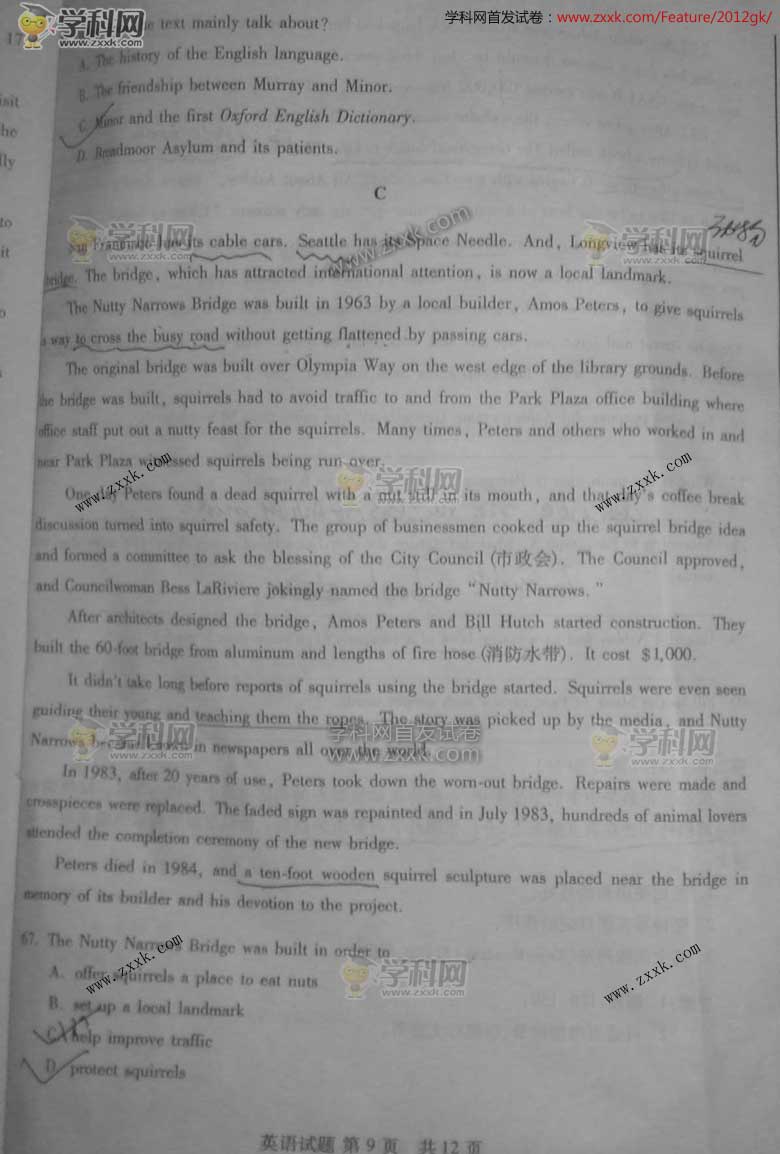 学科网首发试卷：www.zxxk.com/Feature/2012gk/
17
the text mainly talk about?
A. The history of the English language.
B. The friendship between Murray and Minor.
C. Minor and the first Oxford English Dictionary.
D. Broadmoor Asylum and its patients.
C
San Francisco has its cable cars. Seattle has its Space Needle. And, Longview has its squirrel
bridge. The bridge, which has attracted international attention, is now a local landmark.
The Nutty Narrows Bridge was built in 1963 by a local builder, Amos Peters, to give squirrels
a way to cross the busy road without getting flattened by passing cars.
The original bridge was built over Olympia Way on the west edge of the library grounds. Before
the bridge was built, squirrels had to avoid traffic to and from the Park Plaza office building where
office staff put out a nutty feast for the squirrels. Many times, Peters and others who worked in and
near Park Plaza witnessed squirrels being run over.
One day Peters found a dead squirrel with a nut still in its mouth, and that day's coffee break
discussion turned into squirrel safety. The group of businessmen cooked up the squirrel bridge idea
and formed a committee to ask the blessing of the City Council (市政会). The Council approved,
and Councilwoman Bess LaRiviere jokingly named the bridge “Nutty Narrows.”
After architects designed the bridge, Amos Peters and Bill Hutch started construction. They
built the 60-foot bridge from aluminum and lengths of fire hose (消防水带). It cost $1,000.
It didn't take long before reports of squirrels using the bridge started. Squirrels were even seen
guiding their young and teaching them the ropes. The story was picked up by the media, and Nutty
Narrows became in newspapers all over the world.
In 1983, after 20 years of use, Peters took down the worn-out bridge. Repairs were made and
crosspieces were replaced. The faded sign was repainted and in July 1983, hundreds of animal lovers
attended the completion ceremony of the new bridge.
Peters died in 1984, and a ten-foot wooden squirrel sculpture was placed near the bridge in
memory of its builder and his devotion to the project.
67. The Nutty Narrows Bridge was built in order to
A. offer squirrels a place to eat nuts
B. set up a local landmark
C. help improve traffic
D. protect squirrels
英语试题 第9页 共12页